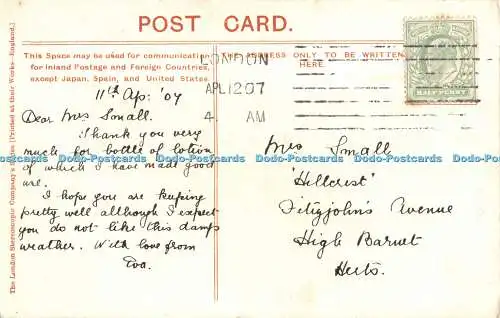 POST CARD.
This Space may be used for communication
for Inland Postage and Foreign Countries,
except Japan, Spain, and United States.
THE ADDRESS ONLY TO BE WRITTEN
HERE.
LONDON
APL 12 07
4. AM
HALFPENNY
11th Ap: '07
Dear Mrs Small.
Thank you very
much for bottle of lotion
of which I have made good
use.
I hope you are keeping
pretty well although I expect
you do not like this damp
weather. With love from
Eva.
Mrs Small
'Hillcrest'
Fitzjohn's Avenue
High Barnet
Herts.
The London Stereoscopic Company's Series (Printed at their Works—England.)
Dodo-Postcards Dodo-Postcards Dodo-Postcards Dodo-Postcards Dodo-Postcards